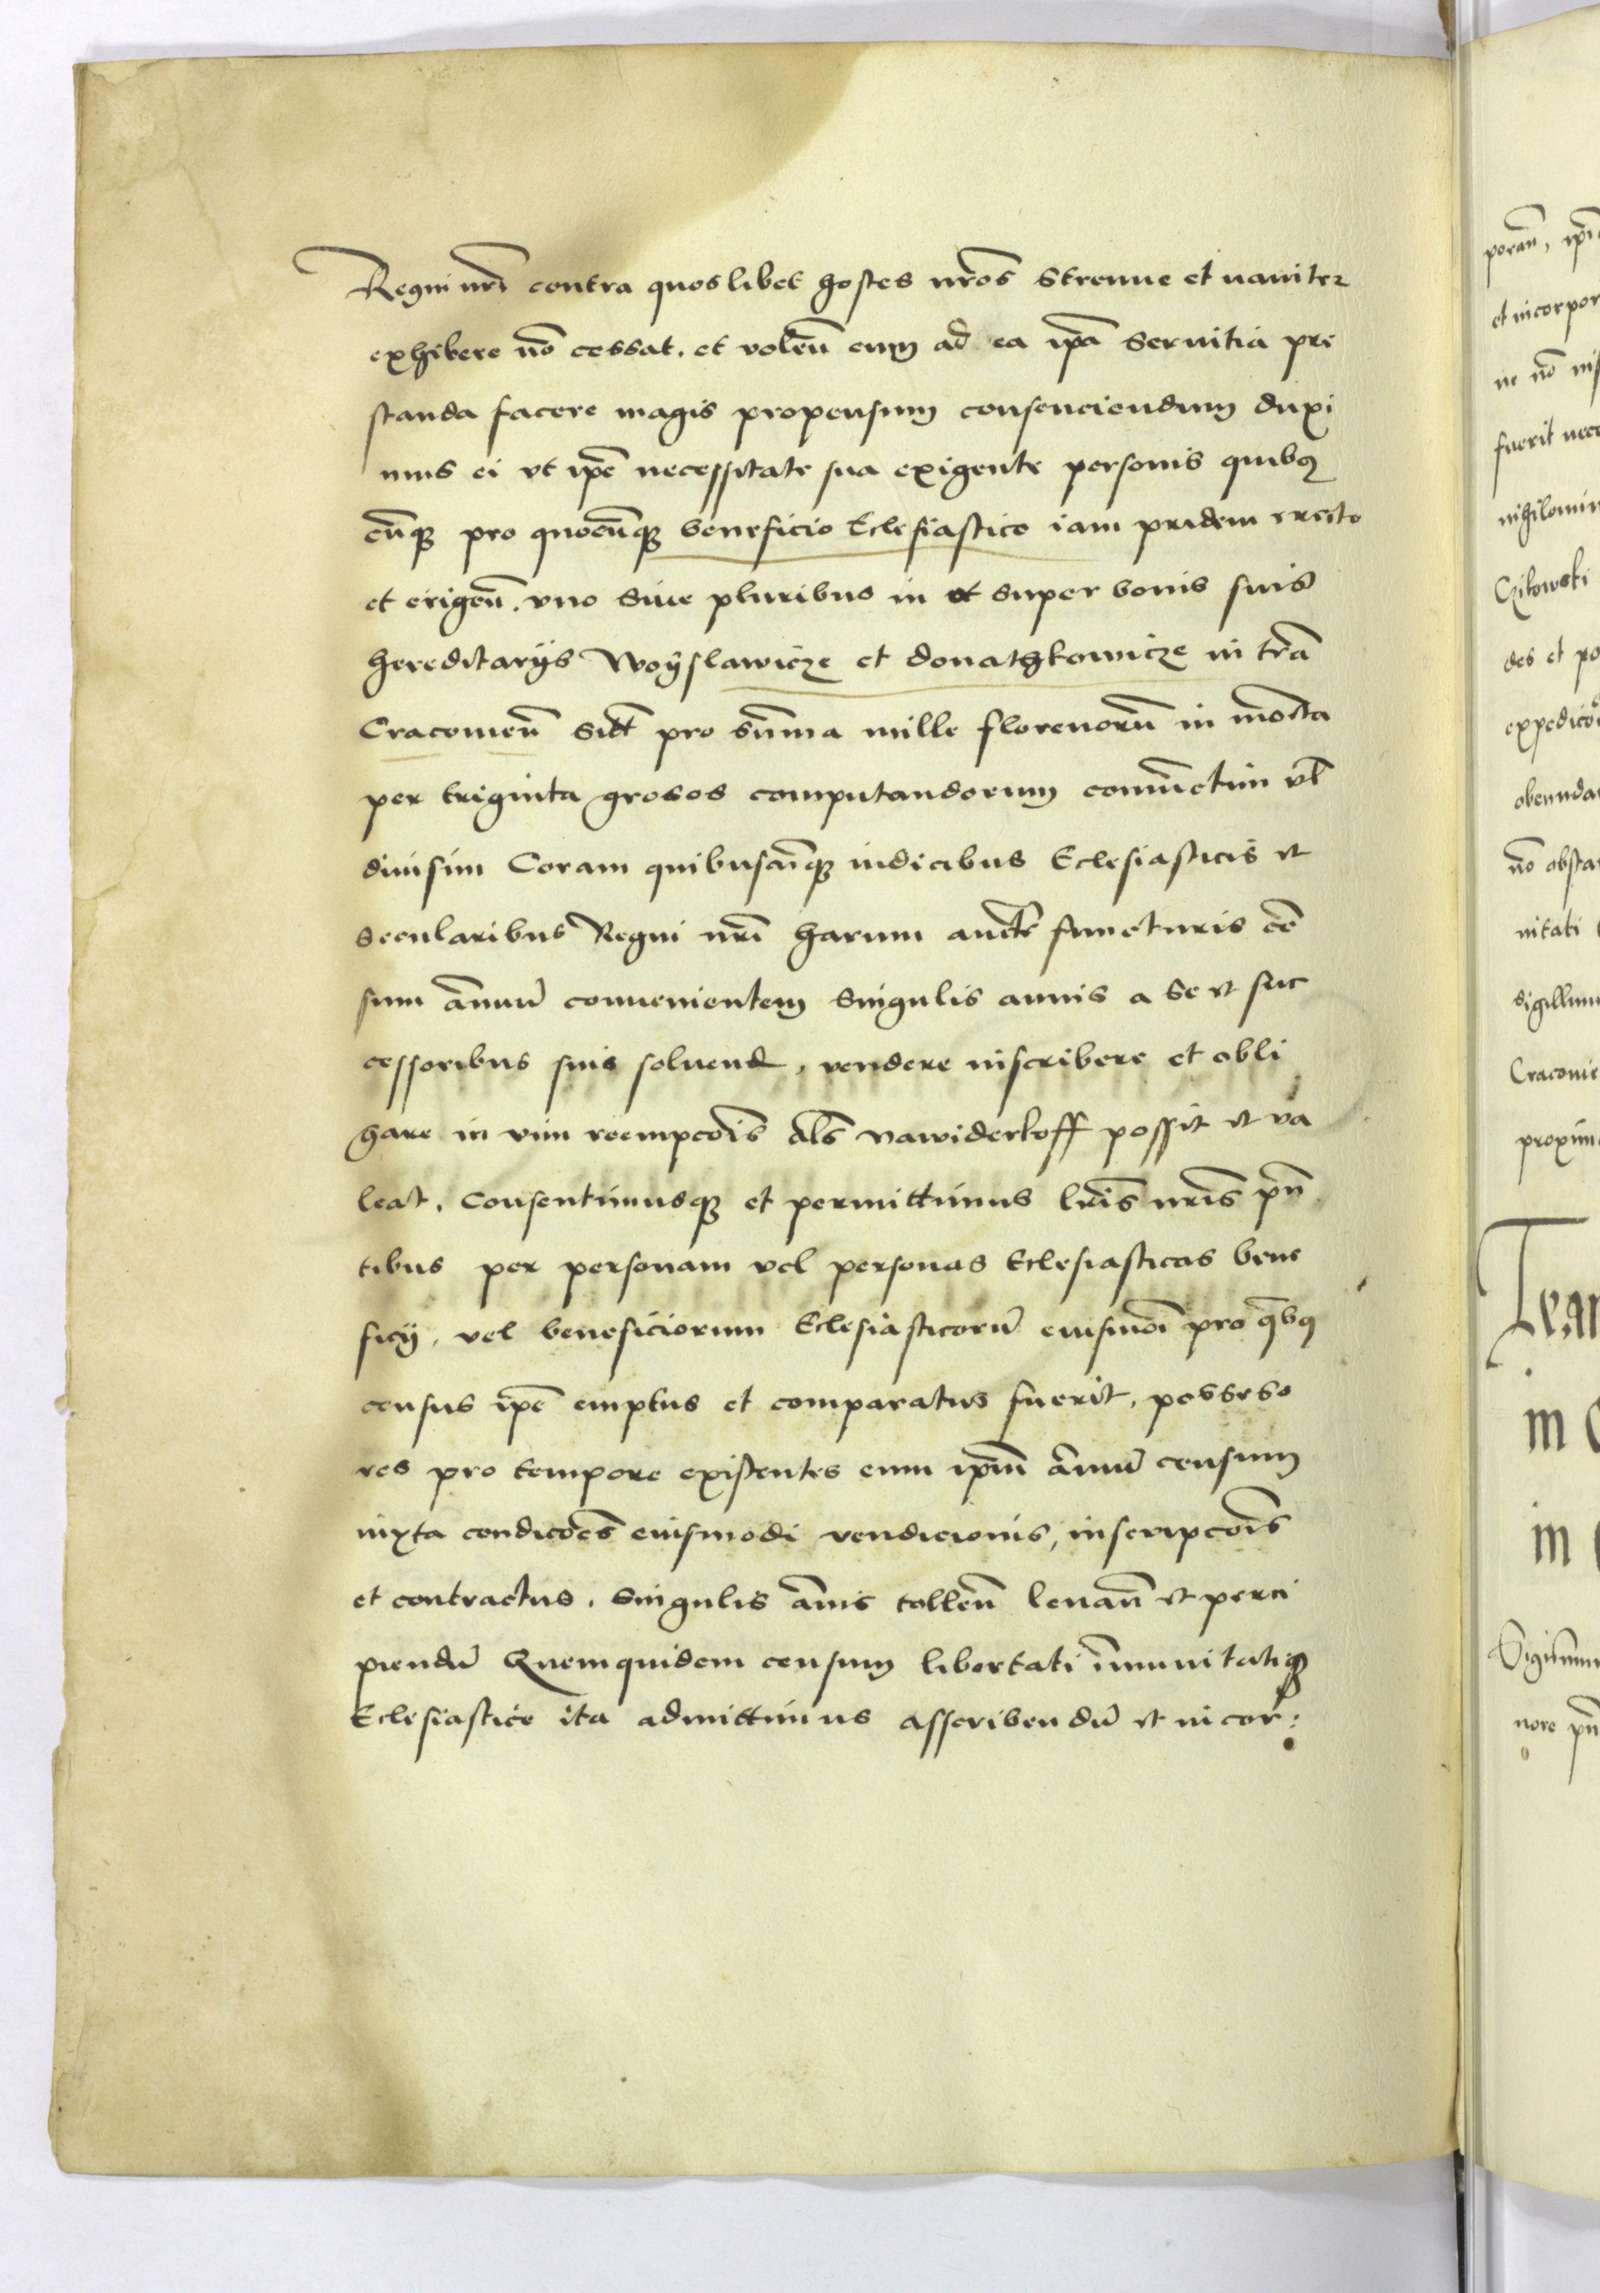 Regni nrī contra quoslibet hostes nrōs Strenue et nauiter
exhibere nō cessat. et volēn eum ad ea ipā Seruitia pre
standa facere magis propensum consenciendum duxi
mus ei vt ipē necessitate sua exigente personis quibus
cūqȝ pro quocūqȝ beneficio Eclesiastico iam pridem erecto
et erigēn. vno Siue pluribus in et super bonis suis
hereditarÿs Woÿslawicze et donathkowicze in trā
Cracouieñ Sitt̄ pro sūmma mille florenorū in monēta
per triginta grosos computandorum coniūctim vl̄
diuisim Coram quibuscūqȝ iudicibus Eclesiasticis et
Secularibus Regni nrī harum auctē functuris cē
sum ānnuū conuenientem Singulis annis a se et suc
cessoribus suis soluend, vendere inscribere et obli
gare in vim reempcōis als̄ nawiderkoff possit et va
leat. Consentimusqȝ et permittimus lrīs nrīs pn̄
tibus per personam vel personas Eclesiasticas bene
ficÿ, vel beneficiorum Eclesiasticorū eiusmōi pro qb̄us
census ipē emptus et comparatus fuerit, possesso
res pro tempore existentes eum ipm̄ ānnuū censum
iuxta condicōes eiusmodi vendicionis, inscripcōis
et contractus, Singulis ānis tollēn leuan̄ et perci
piendū Quemquidem censum libertati īmmunitatiqȝ
Eclesiastice ita admittimus asscribendū et incor:
poran̄, ipi
et incorpor
ne nō
fuerit
nihilomin
Czikowski
des et po
expedicō
obeunda
nō obsta
nitati
Sigillum
Cracouie
proxim
in
in
Sigismun
nore pn̄